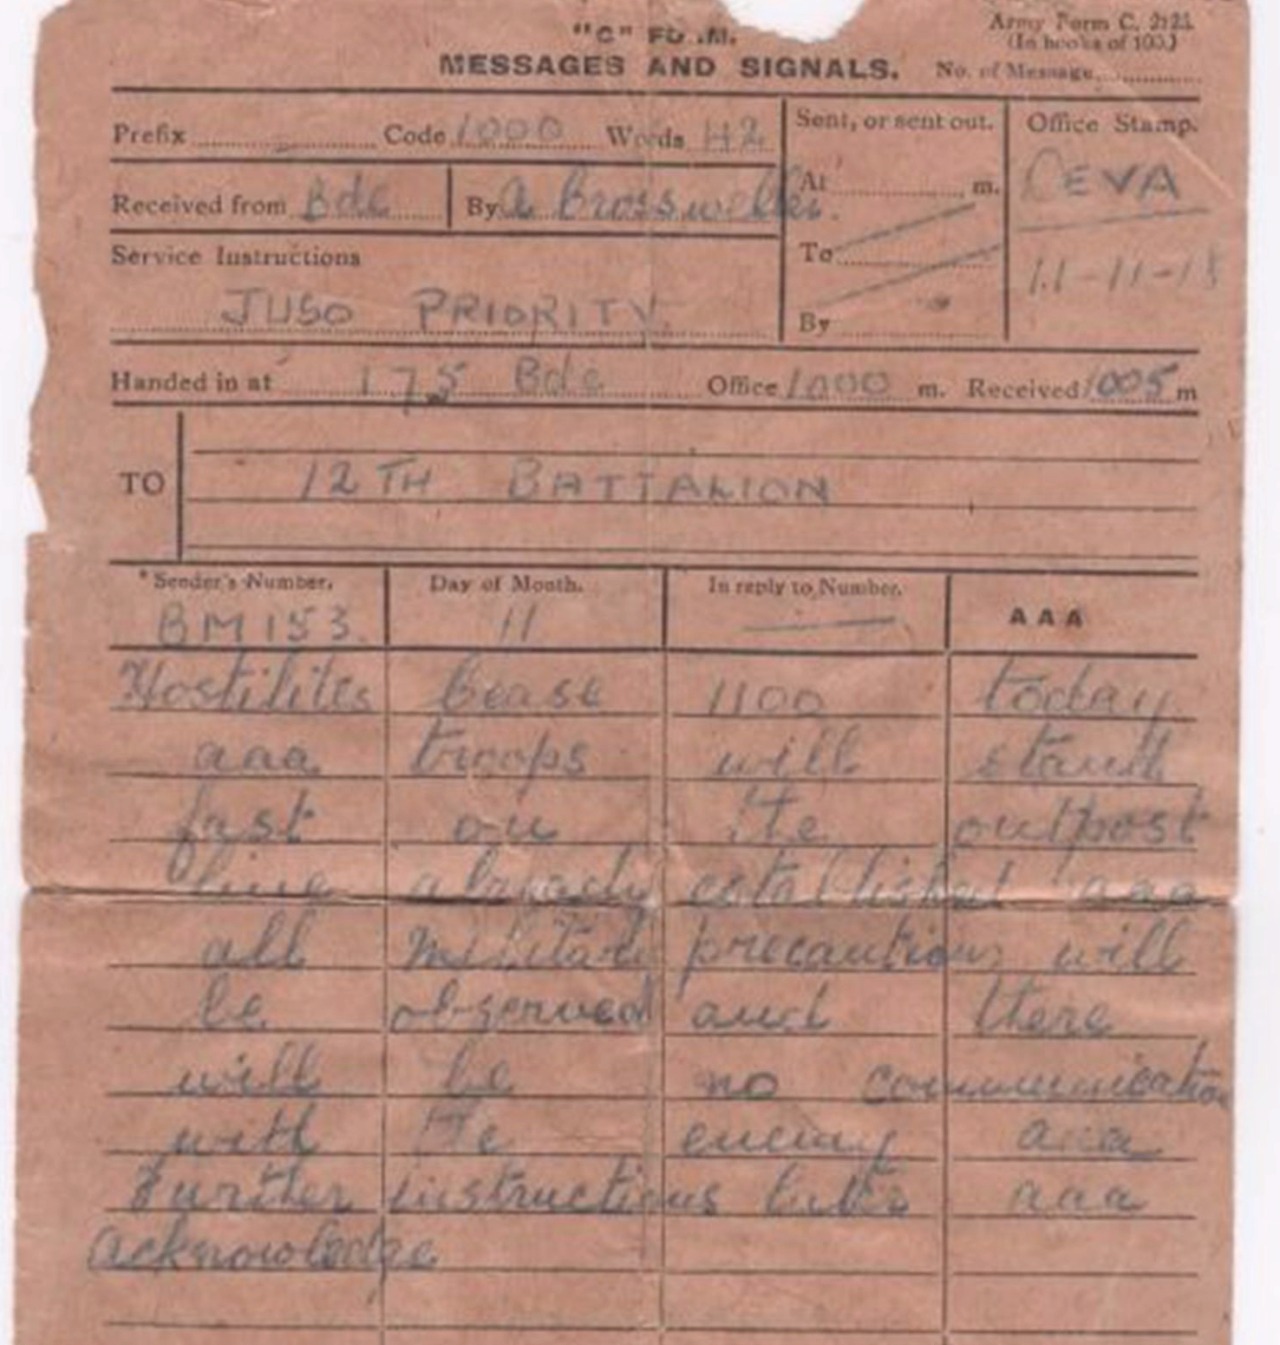 "C" FORM.
Army Form C. 2121.
(In books of 100.)
MESSAGES AND SIGNALS. No. of Message
Prefix Code 1000 Words 42
Sent, or sent out.
Office Stamp.
At m.
CEVA
Received from Bde By
To
11-11-18
Service Instructions
JUSO PRIORITY
By
Handed in at 175 Bde Office 1000 m. Received 1005 m
TO 12TH BATTALION
*Sender's Number. Day of Month. In reply to Number. AAA
BM153. 11
Hostilites Cease 1100 today
aaa troops will stand
fast on the outpost
line already established aaa
all military precautions will
be observed and there
will be no communication
with the enemy aaa
Further instructions later aaa
acknowledge